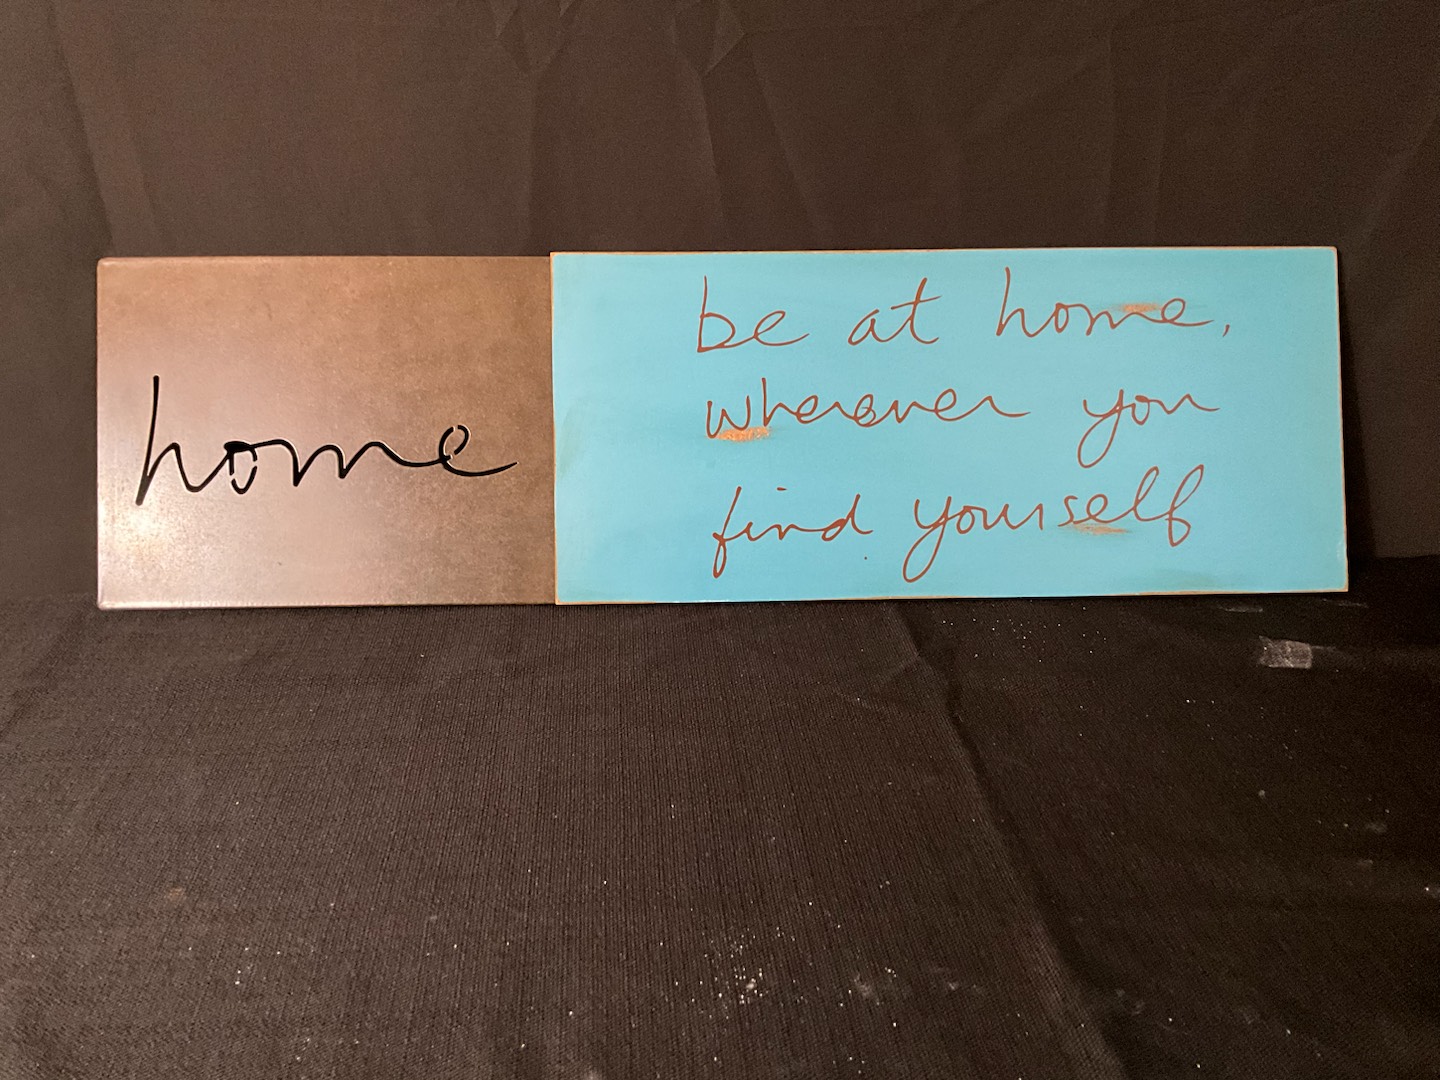 home
be at home,
wherever you
find yourself